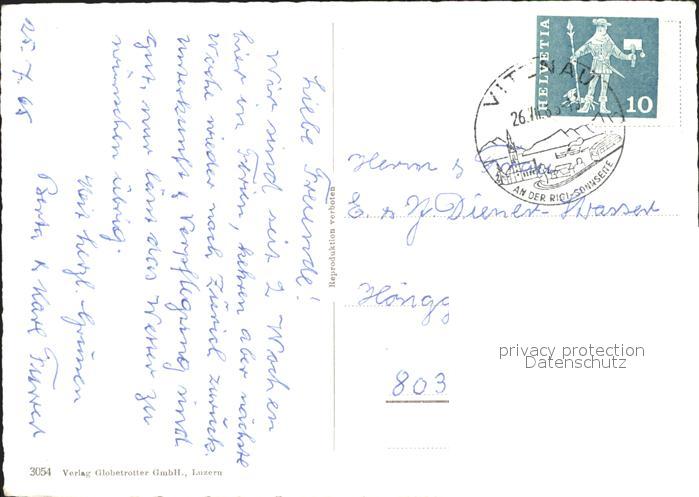 Liebe Freunde!
Wir sind seit 2 Wochen
hier in Ferien, kehren aber nächste
Woche wieder nach Zürich zurück.
Unterkunft & Verpflegung sind
gut, nur lässt das Wetter zu
wünschen übrig.
Herzl. Grüssen
Berta & Karl
25. 7. 65
Reproduktion verboten
3054 Verlag Globetrotter GmbH., Luzern
HELVETIA
10
VITZNAU
26.VII.65
AN DER RIGI-SONNSEITE
Herrn & Frau
E. & J. Diener-Strasser
Höngg
803
privacy protection
Datenschutz